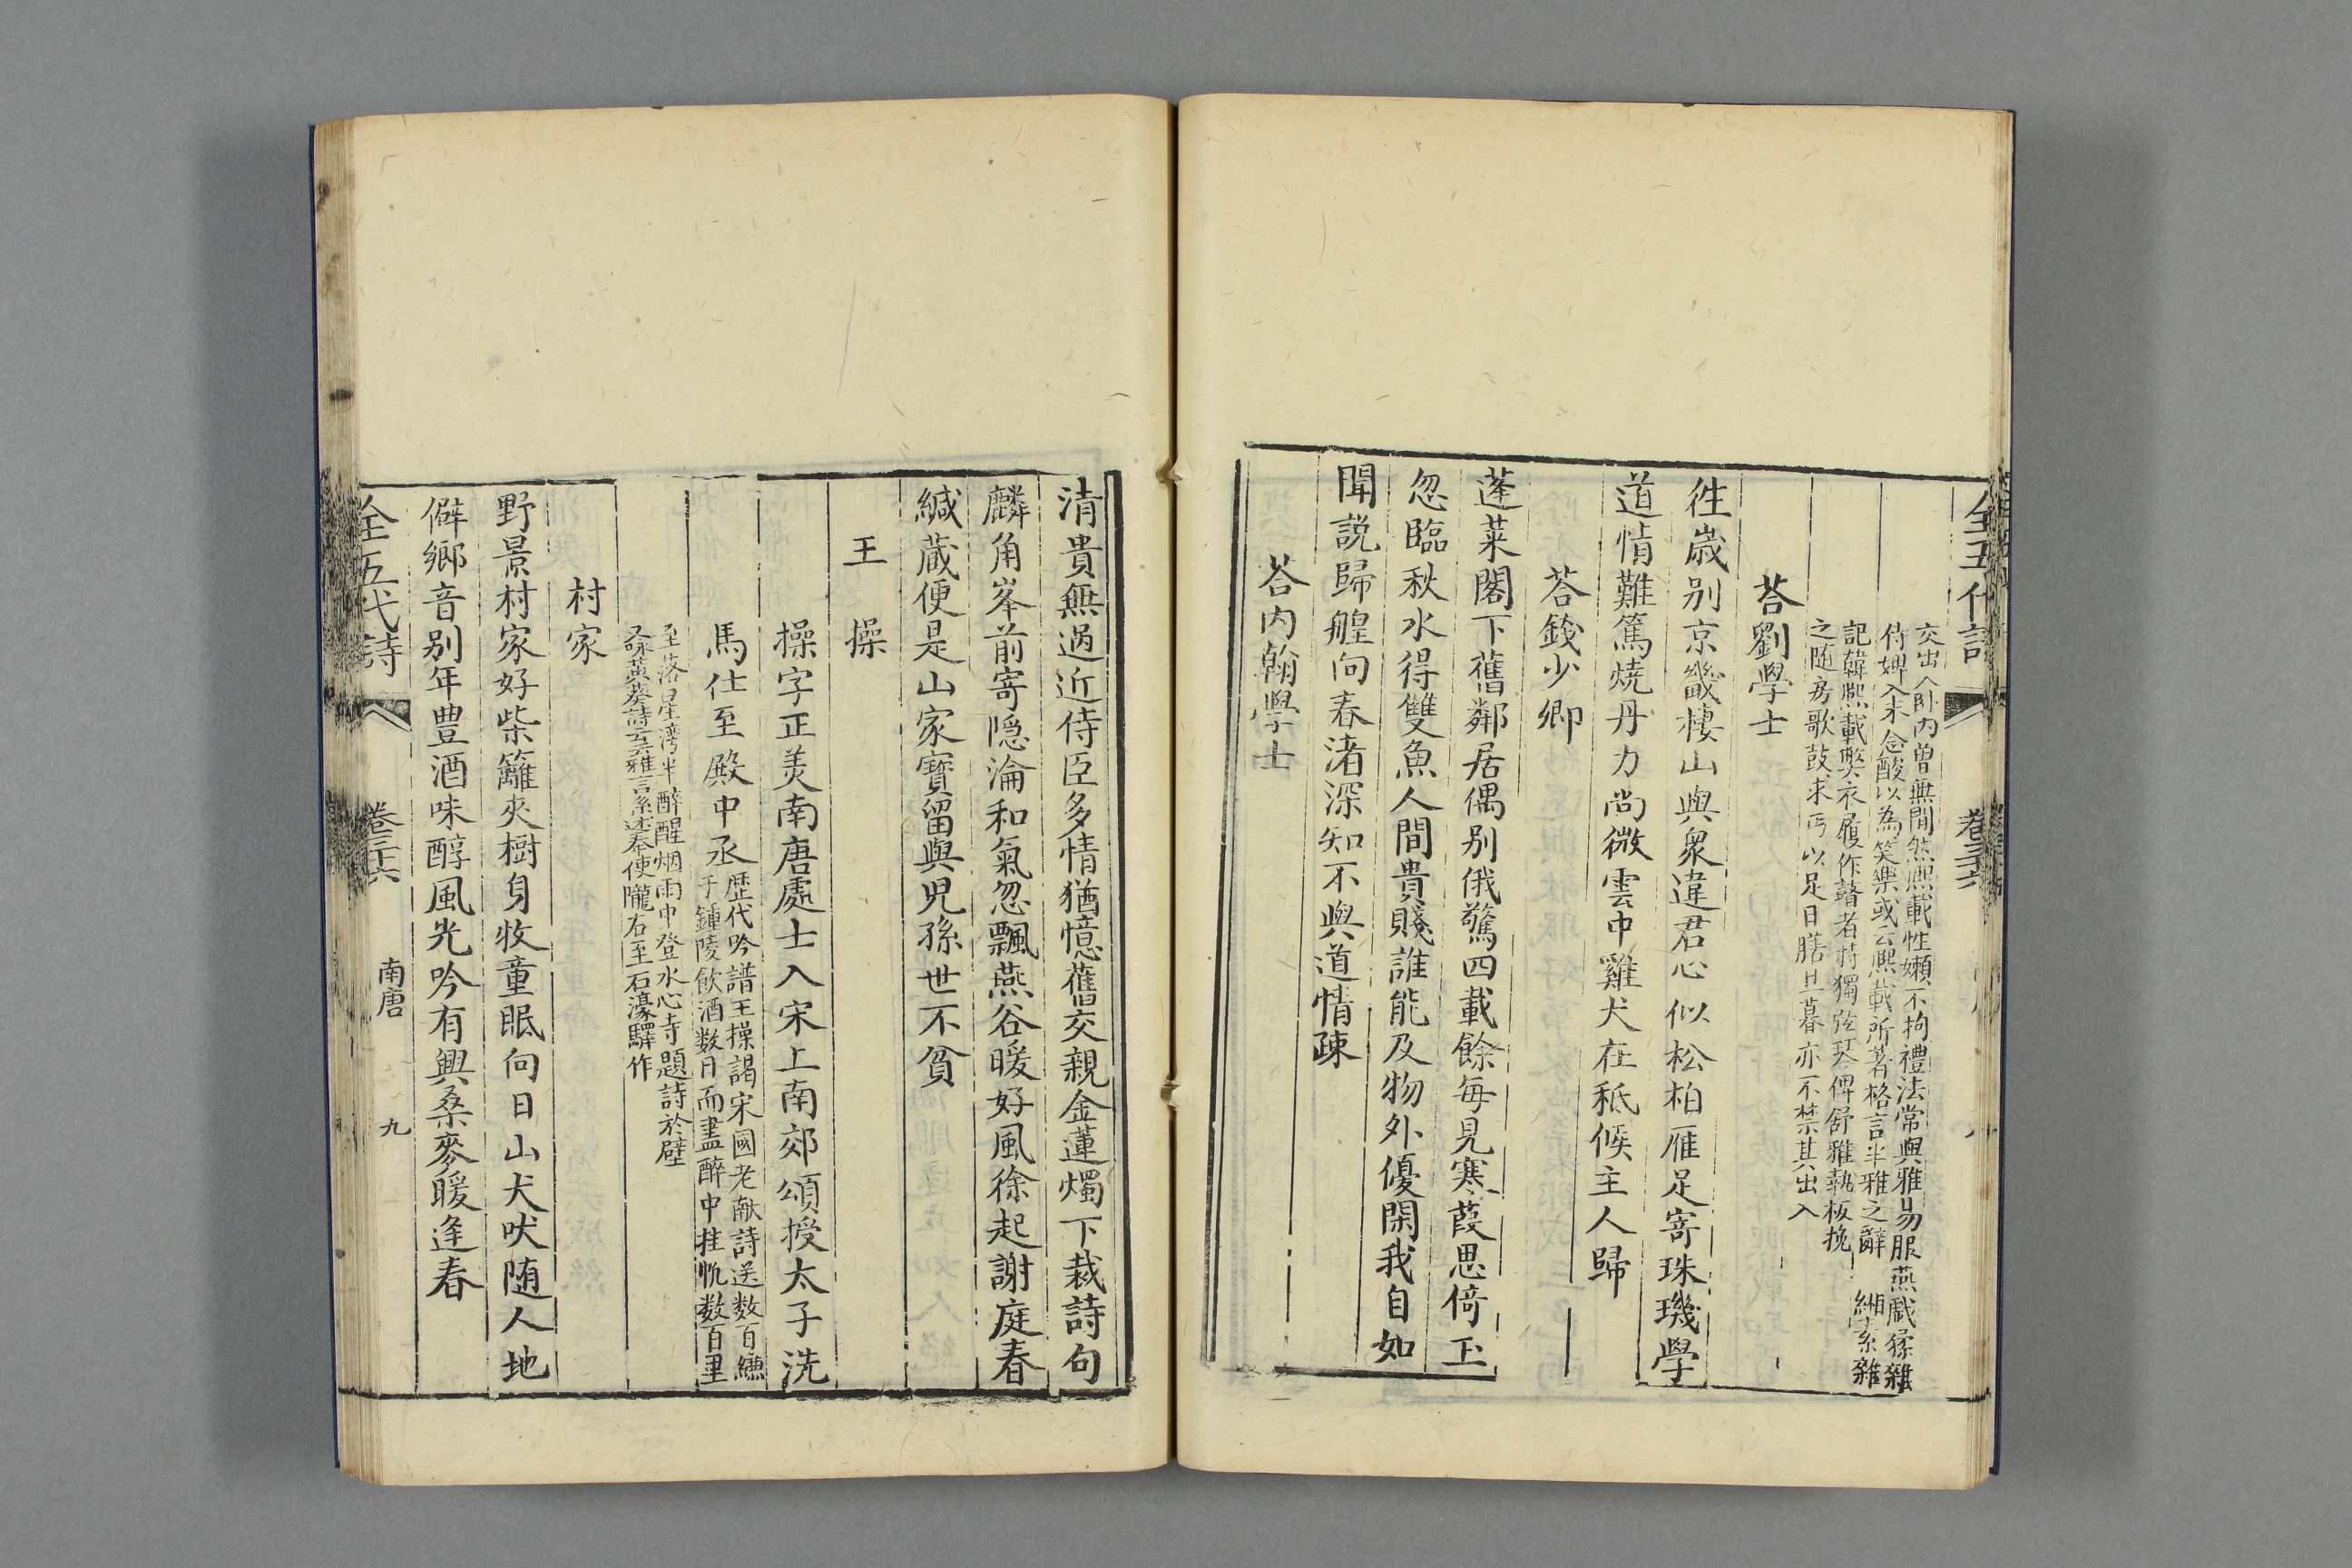 全五代詩
卷三十六
交出入卧内曽無間然熙載性嬾不拘禮法常與雅易服燕戱猱雜
侍婢入末念酸以為笑樂或云熙載所著格言半雅之辭 緗素雜
記韓熙載獘衣履作瞽者持獨弦琴俾舒雅執板挽
之随房歌鼓求丐以足日膳旦暮亦不禁其出入
荅劉學士
徃嵗别京畿棲山與衆違君心似松柏雁足寄珠璣學
道情難篤燒丹力尚微雲中雞犬在秪候主人歸
荅錢少卿
蓬萊閣下舊鄰居偶别俄驚四載餘每見寒葭思倚玉
忽臨秋水得雙魚人間貴賤誰能及物外優閑我自如
聞説歸艎向春渚深知不與道情疎
荅内翰學士
清貴無過近侍臣多情猶憶舊交親金蓮燭下裁詩句
麟角峯前寄隐淪和氣忽飄燕谷暖好風徐起謝庭春
緘蔵便是山家寳留與児孫世不貧
王 操
操字正美南唐處士入宋上南郊頌授太子洗
馬仕至殿中丞歴代吟譜王操謁宋國老献詩送数百縑
于鍾陵飲酒数日而盡醉中挂帆数百里
至落星湾半醉醒烟雨中登水心寺題詩於壁
衮黃葵詩云雅言系述奉使隴右至石濠驛作
村家
野景村家好柴籬夾樹身牧童眠向日山犬吠随人地
僻鄉音别年豊酒味醇風光吟有興桑麥暖逢春
全五代詩
卷三十六
南唐
九